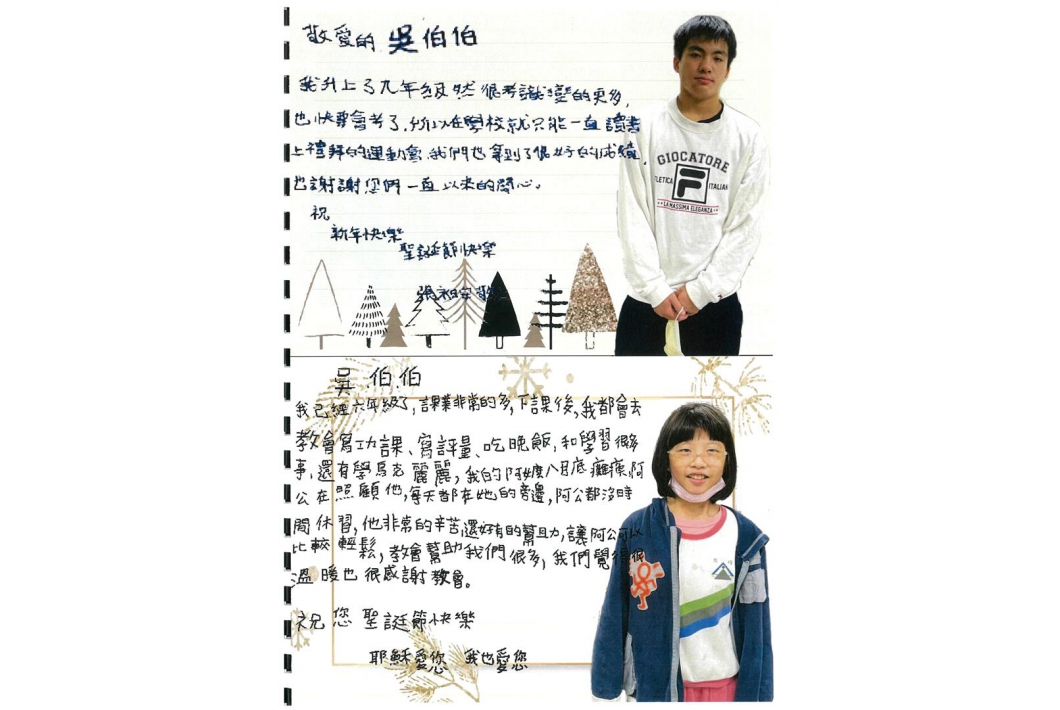 敬愛的 吳伯伯
我升上了九年級然很考識變的更多,
也快要會考了,所以在學校就只能一直讀書
上禮拜的運動會,我們也拿到了很好的成績,
也謝謝您們一直以來的關心。
祝
新年快樂
聖誕節快樂
GIOCATORE
ITALIAN
LA MASSIMA ELEGANZA
吳伯伯
我已經六年級了,課業非常的多,下課後,我都會去
教會寫功課、寫評量、吃晚飯,和學習很多
事,還有學烏克麗麗,我的阿嬤八月底癱瘓,阿
公在照顧他,每天都在她的旁邊,阿公都沒時
間休習,他非常的辛苦,還好有的幫助,讓阿公可以
比較輕鬆,教會幫助我們很多,我們覺得很
溫暖也很感謝教會。
祝您聖誕節快樂
耶穌愛您 我也愛您